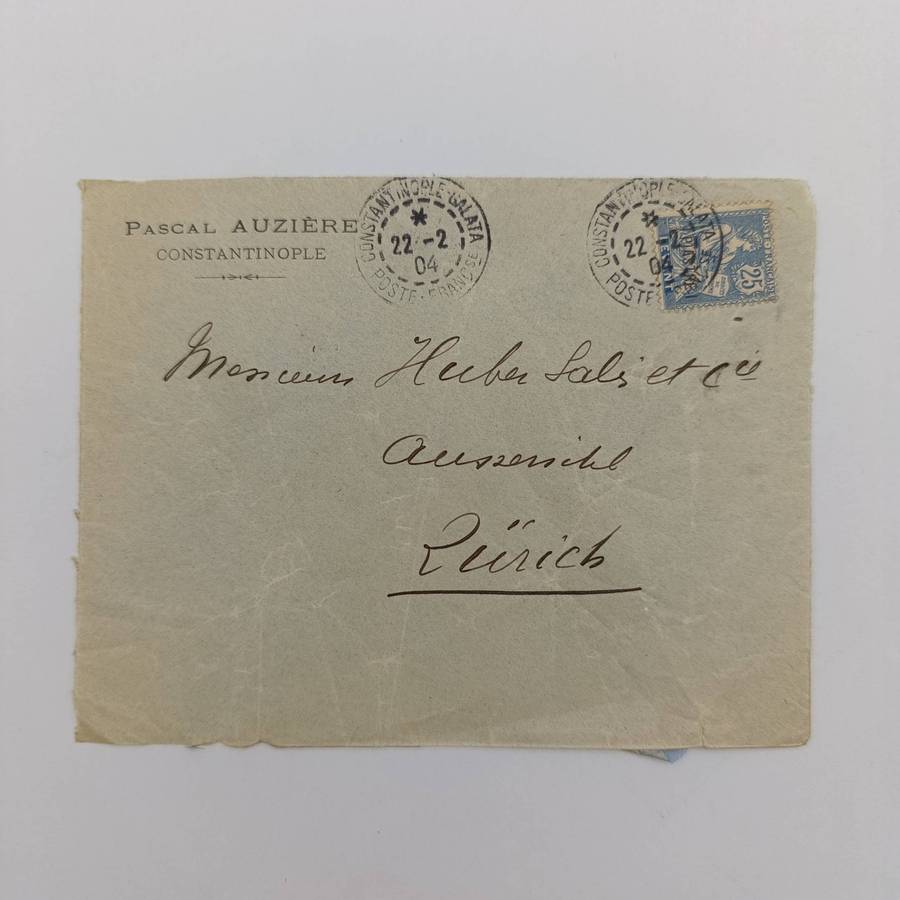 PASCAL AUZIÈRE
CONSTANTINOPLE
CONSTANTINOPLE-GALATA
22 -2
04
POSTE FRANÇSE
CONSTANTINOPLE-GALATA
22 -2
04
POSTE
25
LEVANT
Messieurs Huber Salis et Cie
Aussersihl
Zürich